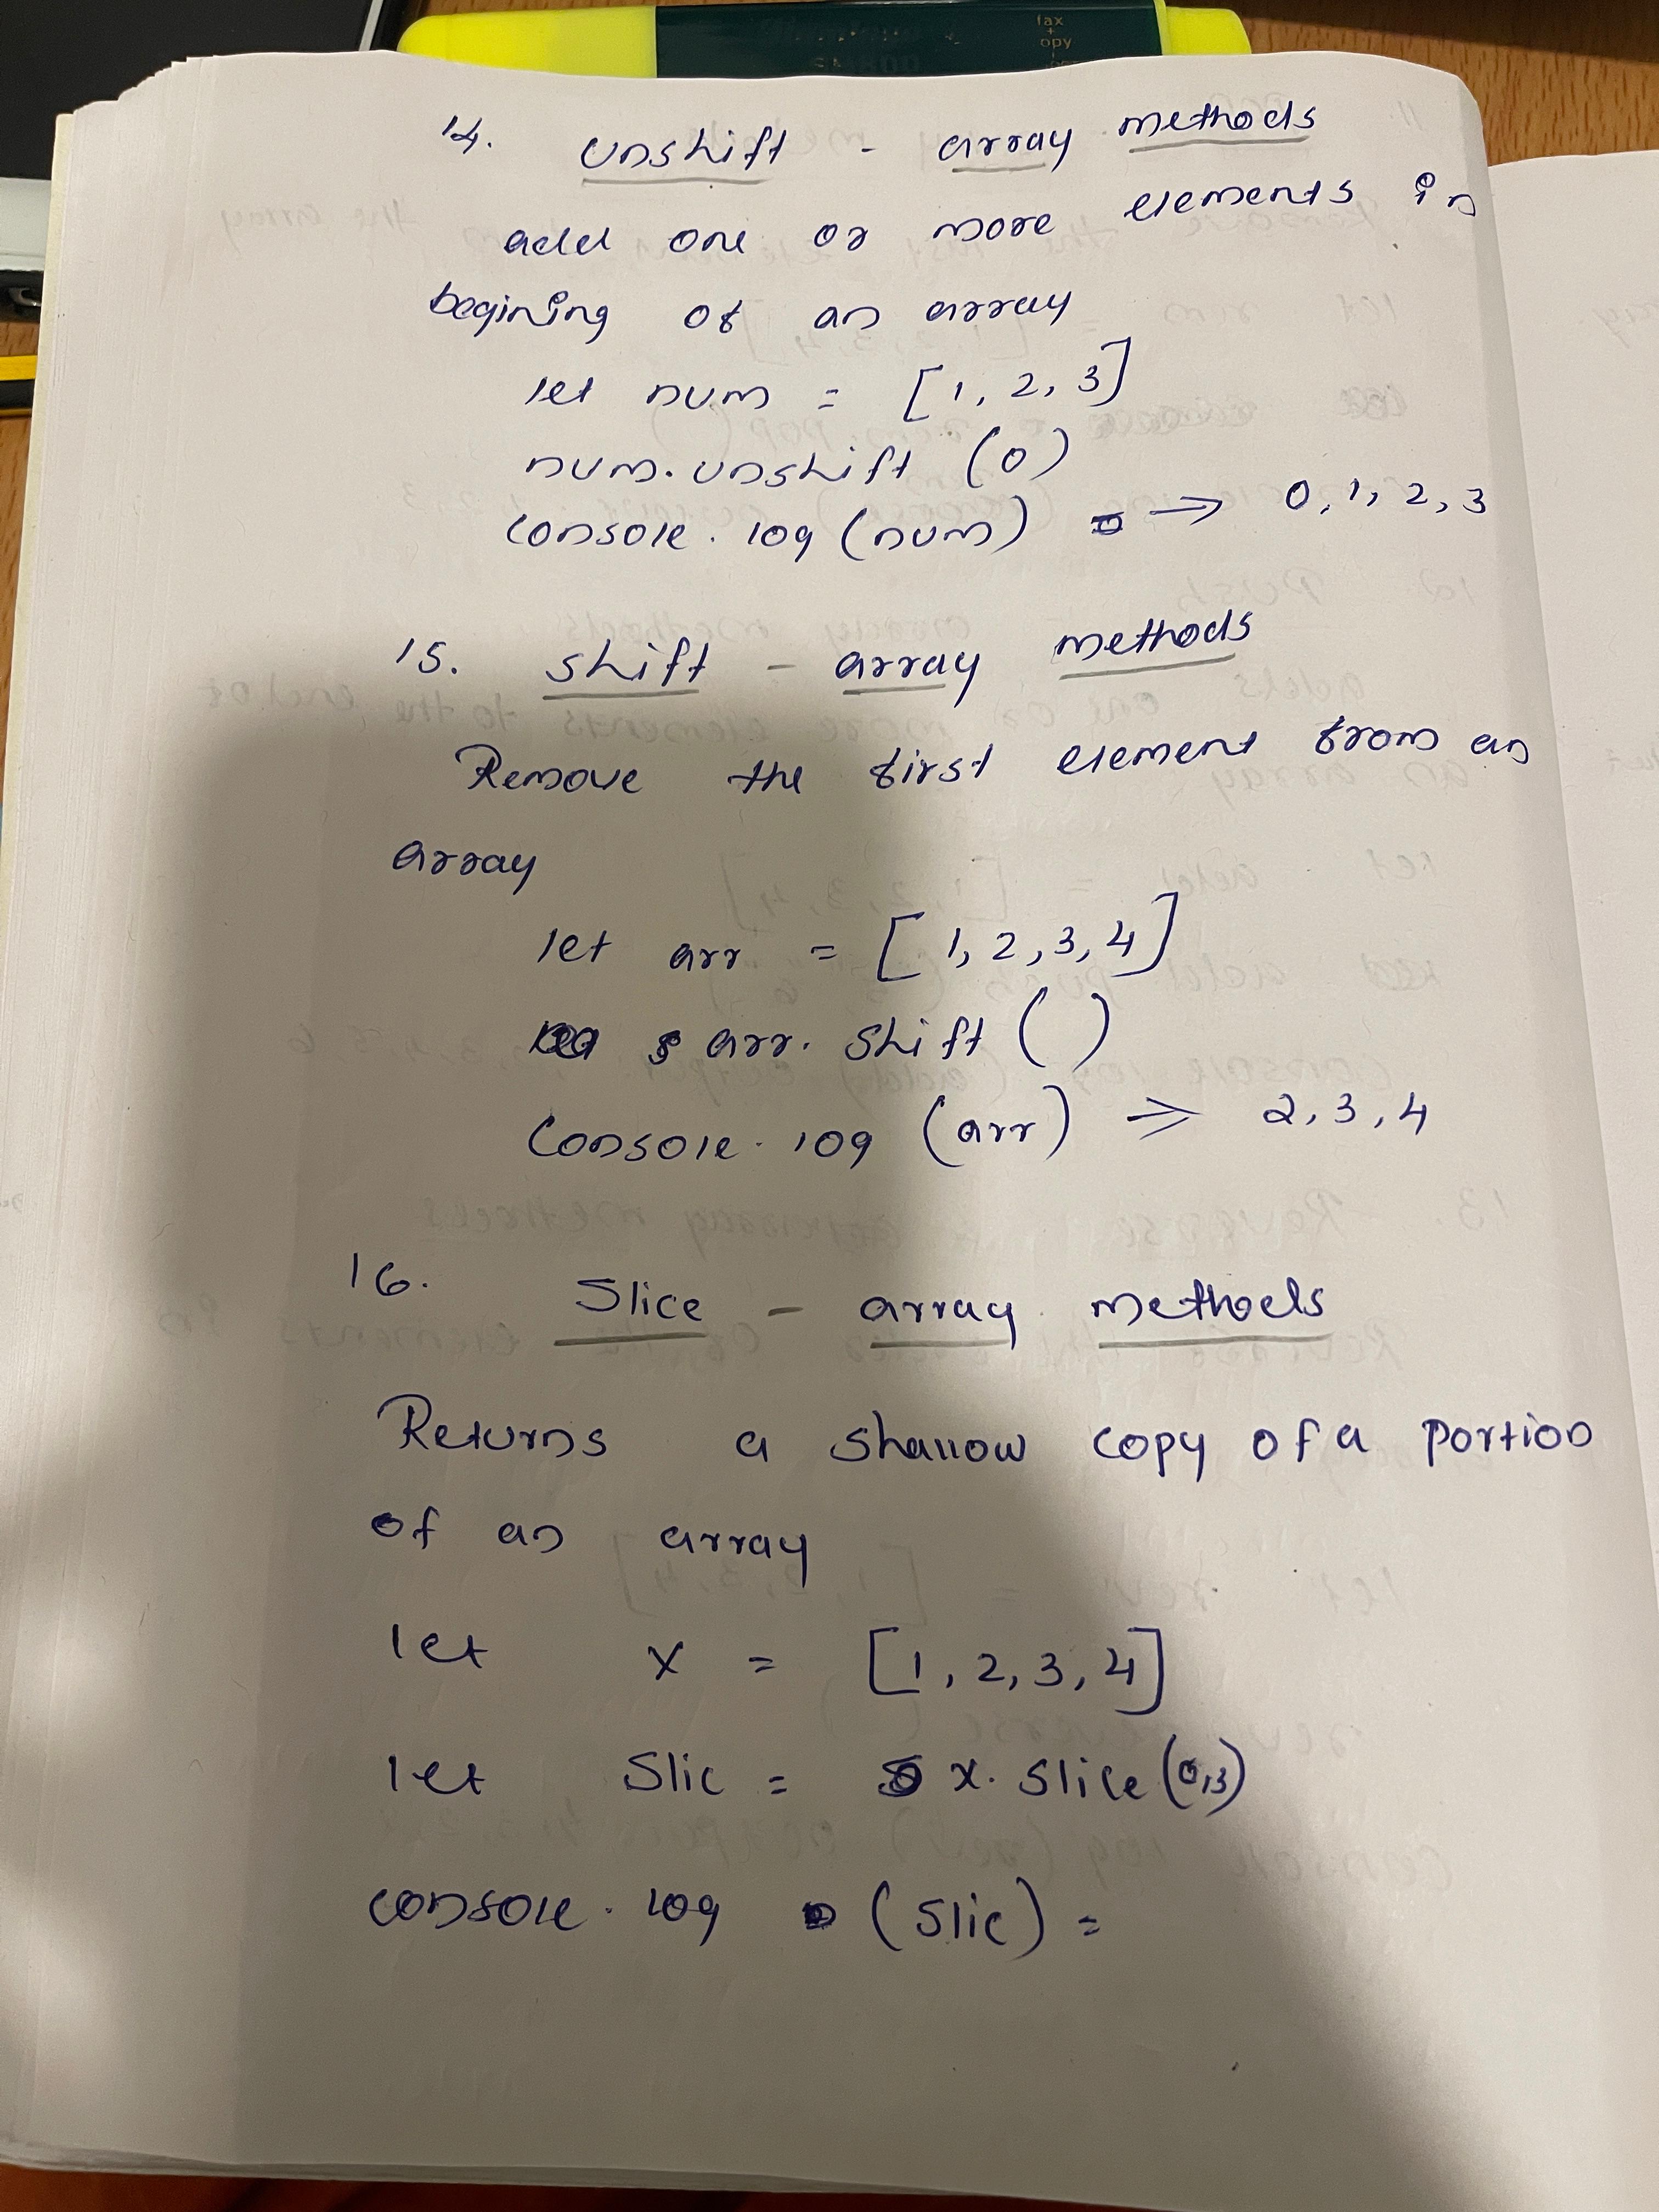 fax
+
opy
14. unshift - array methods
add one or more elements in
begining of an array
let num = [1, 2, 3]
num.unshift (0)
console.log (num) → 0, 1, 2, 3
15. shift - array methods
Remove the first element from an
array
let arr = [1, 2, 3, 4]
arr.shift ()
console.log (arr) ⇒ 2, 3, 4
16. Slice - array methods
Returns a shallow copy of a portion
of an array
let x = [1, 2, 3, 4]
let Slic = x.slice(0,3)
console.log (slic) =